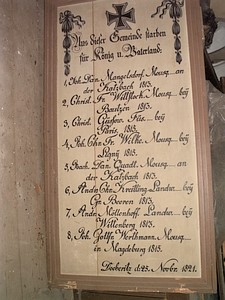 Aus dieser Gemeinde starben
für König u. Vaterland.
1, Joh. Dan. Mangelsdorf. Mousq. an
der Katzbach 1813.
2, Christ. Fr. Wellflock. Mousq. bey
Bautzen 1813.
3, Christ. Füs. bey
Paris. 1815.
4, Joh. Chn. Fr. Wilke. Mousq. bey
Ligny 1815.
5, Joach. Dan. Qundt. Mousq. an
der Katzbach 1813.
6, Andr. Chn. Landw. bey
Gr. Beeren 1813.
7, Andr. Möllenhoff. Landw. bey
Wittenberg 1813.
8, Joh. Gottfr. Werthmann. Mousq.
in Magdeburg 1815.
Doeberitz d. 25. Novbr. 1821.